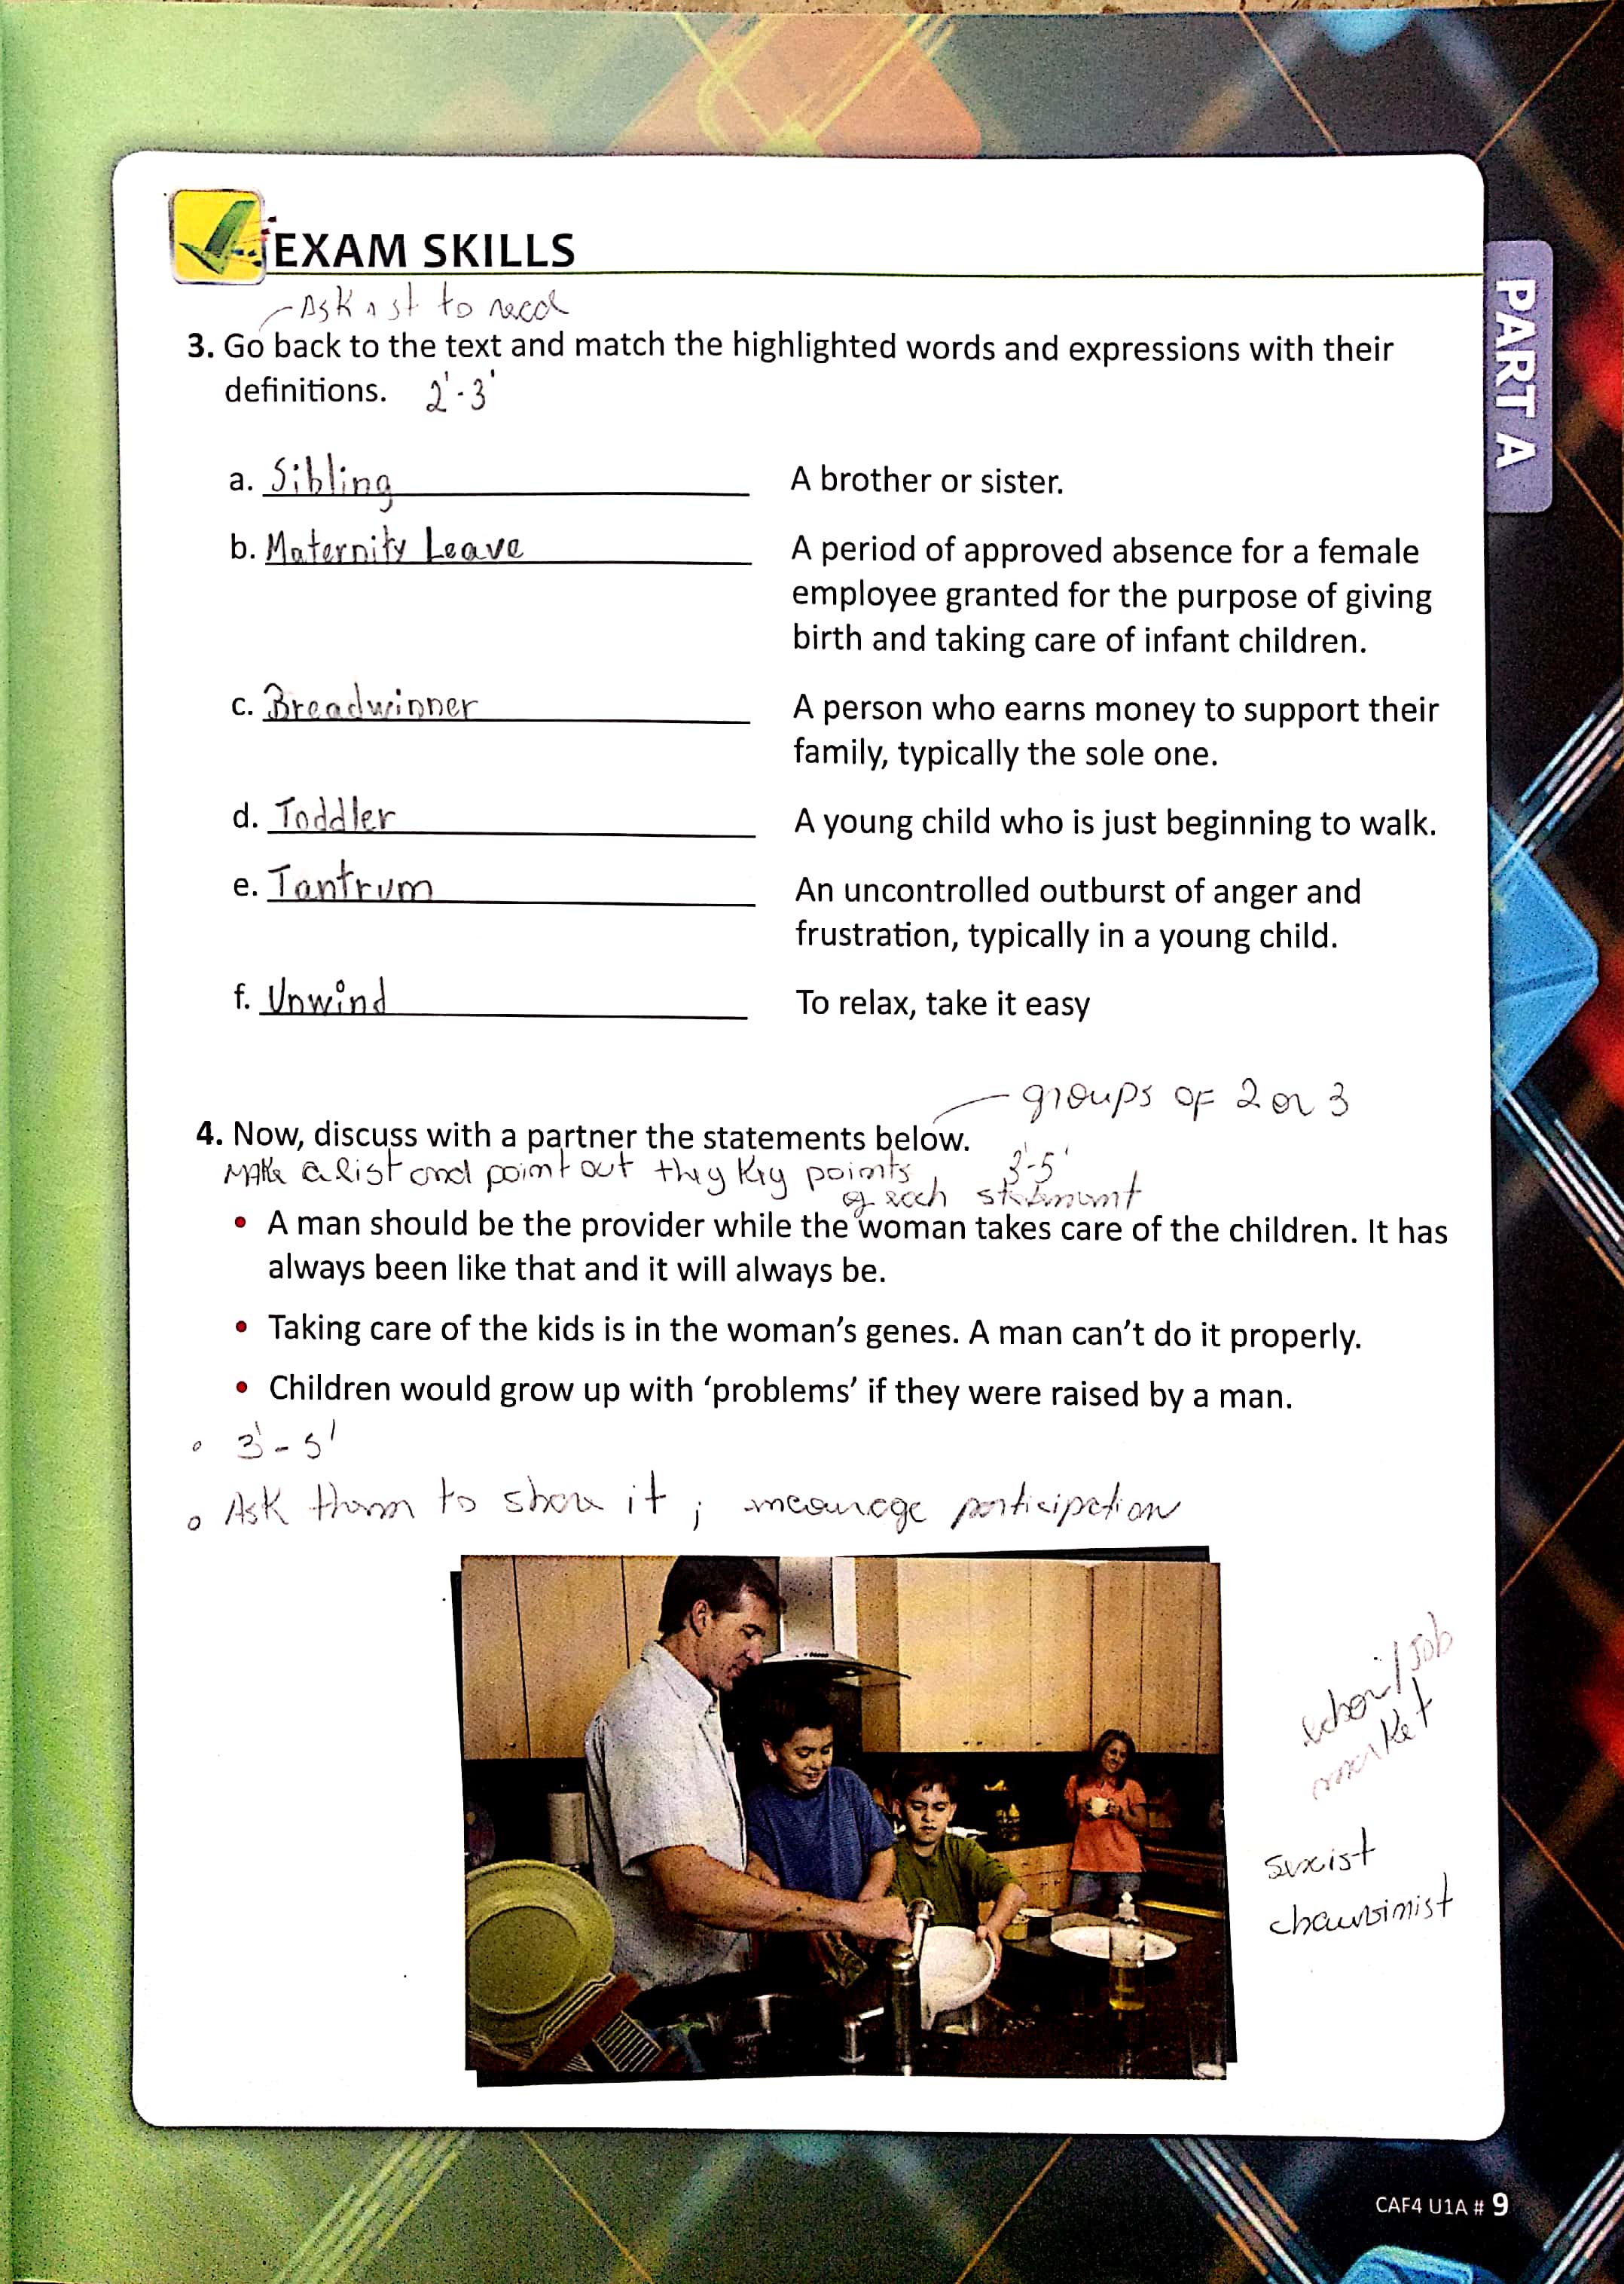 EXAM SKILLS
Ask 1 st to read
3. Go back to the text and match the highlighted words and expressions with their
definitions. 2'-3'
a. Sibling A brother or sister.
b. Maternity Leave A period of approved absence for a female
employee granted for the purpose of giving
birth and taking care of infant children.
c. Breadwinner A person who earns money to support their
family, typically the sole one.
d. Toddler A young child who is just beginning to walk.
e. Tantrum An uncontrolled outburst of anger and
frustration, typically in a young child.
f. Unwind To relax, take it easy
groups of 2 or 3
4. Now, discuss with a partner the statements below.
Make a list and point out they key points 3'-5'
of each statement
• A man should be the provider while the woman takes care of the children. It has
always been like that and it will always be.
• Taking care of the kids is in the woman's genes. A man can't do it properly.
• Children would grow up with 'problems' if they were raised by a man.
3'-5'
Ask them to share it ; encourage participation
/ Job
market
sexist
chauvinist
PART A
CAF4 U1A # 9